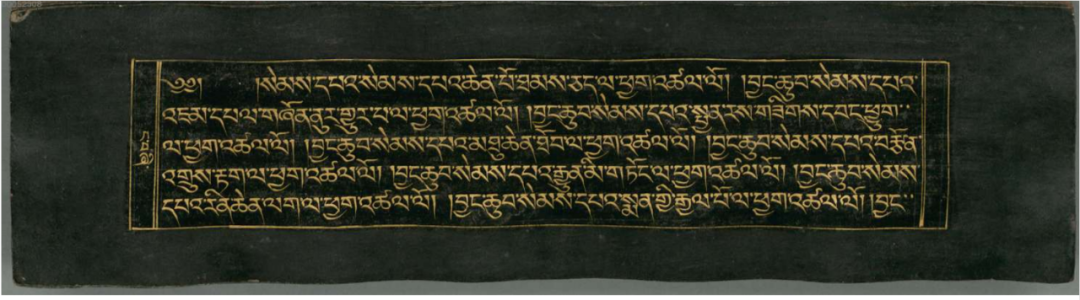 ༄༅། །སེམས་དཔའ་སེམས་དཔའ་ཆེན་པོ་ཐམས་ཅད་ལ་ཕྱག་འཚལ་ལོ། །བྱང་ཆུབ་སེམས་དཔའ་
འཇམ་དཔལ་གཞོན་ནུར་གྱུར་པ་ལ་ཕྱག་འཚལ་ལོ། །བྱང་ཆུབ་སེམས་དཔའ་སྤྱན་རས་གཟིགས་དབང་ཕྱུག་
ལ་ཕྱག་འཚལ་ལོ། །བྱང་ཆུབ་སེམས་དཔའ་མཐུ་ཆེན་ཐོབ་ལ་ཕྱག་འཚལ་ལོ། །བྱང་ཆུབ་སེམས་དཔའ་བརྩོན་
འགྲུས་རྟག་ལ་ཕྱག་འཚལ་ལོ། །བྱང་ཆུབ་སེམས་དཔའ་རྒྱུན་མི་གཏོང་ལ་ཕྱག་འཚལ་ལོ། །བྱང་ཆུབ་སེམས་
དཔའ་རིན་ཆེན་ལག་ལ་ཕྱག་འཚལ་ལོ། །བྱང་ཆུབ་སེམས་དཔའ་སྨན་གྱི་རྒྱལ་པོ་ལ་ཕྱག་འཚལ་ལོ། །བྱང་